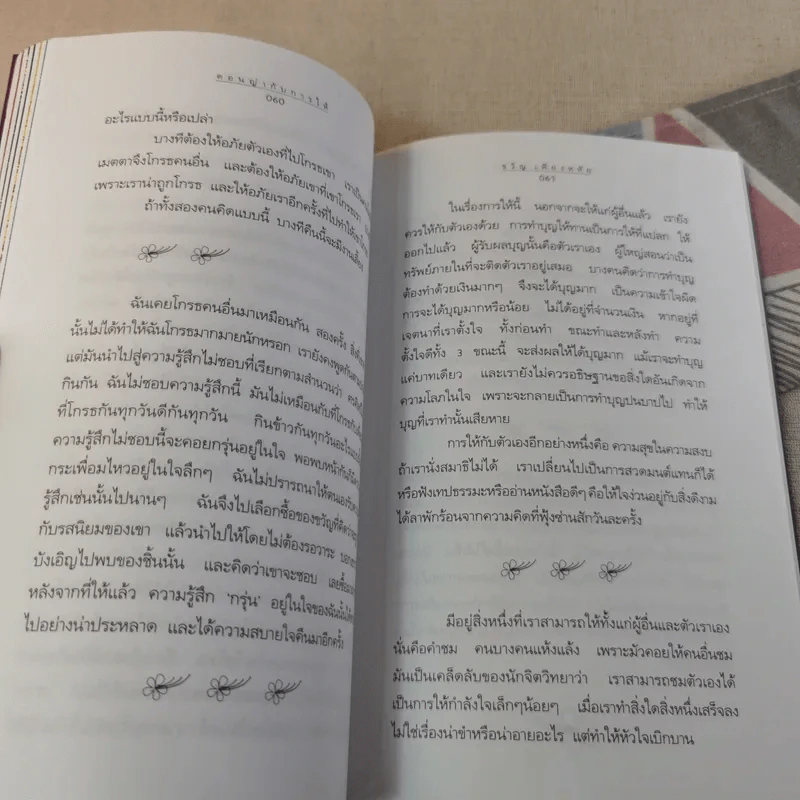 ตอนญ่ากับการให้
060
อะไรแบบนี้หรือเปล่า
บางทีต้องให้อภัยตัวเองที่ไปโกรธเขา เราเป็น
เมตตาจึงโกรธคนอื่น และต้องให้อภัยเขาที่เขาโกรธเรา
เพราะเราน่าถูกโกรธ และให้อภัยเราอีกครั้งที่ไปทำให้เขา
ถ้าทั้งสองคนคิดแบบนี้ บางทีคืนนี้จะมีงานเลี้ยง
ฉันเคยโกรธคนอื่นมาเหมือนกัน สองครั้ง
นั้นไม่ได้ทำให้ฉันโกรธมากมายนักหรอก เรายังคงพูดกัน
แต่มันนำไปสู่ความรู้สึกไม่ชอบที่เรียกตามสำนวนว่า
กินกัน ฉันไม่ชอบความรู้สึกนี้ มันไม่เหมือนกับที่โกรธกัน
ที่โกรธกันทุกวันดีกันทุกวัน กินข้าวกันทุกวันอะไรแบบนี้
ความรู้สึกไม่ชอบนี้จะคอยกรุ่นอยู่ในใจ พอพบหน้ากัน
กระเพื่อมไหวอยู่ในใจลึกๆ ฉันไม่ปรารถนาให้ตนเอง
รู้สึกเช่นนั้นไปนานๆ ฉันจึงไปเลือกซื้อของขวัญที่คิดว่า
กับรสนิยมของเขา แล้วนำไปให้โดยไม่ต้องรอวาระ
บังเอิญไปพบของชิ้นนั้น และคิดว่าเขาจะชอบ เลยซื้อ
หลังจากที่ให้แล้ว ความรู้สึก 'กรุ่น' อยู่ในใจของฉันนั้น
ไปอย่างน่าประหลาด และได้ความสบายใจคืนมาอีกครั้ง
ขวัญ เพียงหทัย
061
ในเรื่องการให้นี้ นอกจากจะให้แก่ผู้อื่นแล้ว เรายัง
ควรให้กับตัวเองด้วย การทำบุญให้ทานเป็นการให้ที่แปลก ให้
ออกไปแล้ว ผู้รับผลบุญนั้นคือตัวเราเอง ผู้ใหญ่สอนว่าเป็น
ทรัพย์ภายในที่จะติดตัวเราอยู่เสมอ บางคนคิดว่าการทำบุญ
ต้องทำด้วยเงินมากๆ จึงจะได้บุญมาก เป็นความเข้าใจผิด
การจะได้บุญมากหรือน้อย ไม่ได้อยู่ที่จำนวนเงิน หากอยู่ที่
เจตนาที่เราตั้งใจ ทั้งก่อนทำ ขณะทำและหลังทำ ความ
ตั้งใจดีทั้ง 3 ขณะนี้ จะส่งผลให้ได้บุญมาก แม้เราจะทำบุญ
แค่บาทเดียว และเรายังไม่ควรอธิษฐานขอสิ่งใดอันเกิดจาก
ความโลภในใจ เพราะจะกลายเป็นการทำบุญปนบาปไป ทำให้
บุญที่เราทำนั้นเสียหาย
การให้กับตัวเองอีกอย่างหนึ่งคือ ความสุขในความสงบ
ถ้าเรานั่งสมาธิไม่ได้ เราเปลี่ยนไปเป็นการสวดมนต์แทนก็ได้
หรือฟังเทปธรรมะหรืออ่านหนังสือดีๆ คือให้ใจง่วนอยู่กับสิ่งดีงาม
ได้ลาพักร้อนจากความคิดที่ฟุ้งซ่านสักวันละครั้ง
มีอยู่สิ่งหนึ่งที่เราสามารถให้ทั้งแก่ผู้อื่นและตัวเราเอง
นั่นคือคำชม คนบางคนแห้งแล้ง เพราะมัวคอยให้คนอื่นชม
มันเป็นเคล็ดลับของนักจิตวิทยาว่า เราสามารถชมตัวเองได้
เป็นการให้กำลังใจเล็กๆน้อยๆ เมื่อเราทำสิ่งใดสิ่งหนึ่งเสร็จลง
ไม่ใช่เรื่องน่าขำหรือน่าอายอะไร แต่ทำให้หัวใจเบิกบาน